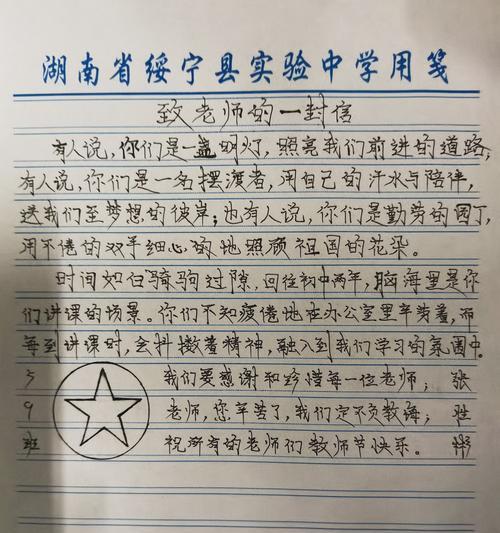 湖南省绥宁县实验中学用笺
致老师的一封信
有人说,你们是一盏明灯,照亮我们前进的道路;
有人说,你们是一名摆渡者,用自己的汗水与陪伴,
送我们至梦想的彼岸;也有人说,你们是勤劳的园丁,
用不倦的双手细心的地照顾祖国的花朵。
时间如白骑驹过隙,回位初中两年,脑海里是你
们讲课的场景。你们不知疲倦地在办公室里年劳着,而
每到讲课时,会抖擞着精神,融入到我们学习的氛围中。
5 我们要感谢和珍惜每一位老师; 张
9 老师,您辛苦了,我们定不负教诲; 胜
班 祝所有的老师们教师节快乐。